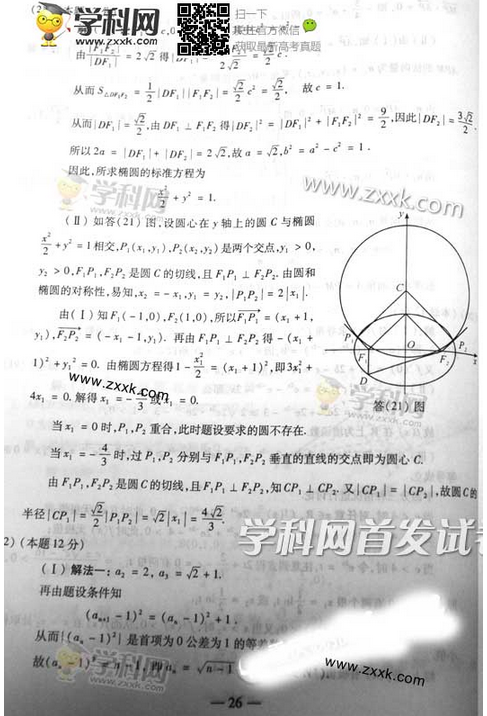 学科网
www.zxxk.com
扫一下
官方微信
获取最新高考真题
由 |F₁F₂|/|DF₁| = 2√2 得 |DF₁| =
从而 S△DF₁F₂ = 1/2 |DF₁||F₁F₂| = √2/2 c² = √2/2, 故 c = 1.
从而 |DF₁| = √2/2, 由 DF₁ ⊥ F₁F₂ 得 |DF₂|² = |DF₁|² + |F₁F₂|² = 9/2, 因此 |DF₂| = 3√2/2.
所以 2a = |DF₁| + |DF₂| = 2√2, 故 a = √2, b² = a² − c² = 1.
因此, 所求椭圆的标准方程为
x²/2 + y² = 1.
(Ⅱ) 如答(21)图, 设圆心在 y 轴上的圆 C 与椭圆
x²/2 + y² = 1 相交, P₁(x₁,y₁), P₂(x₂,y₂) 是两个交点, y₁ > 0,
y₂ > 0, F₁P₁, F₂P₂ 是圆 C 的切线, 且 F₁P₁ ⊥ F₂P₂. 由圆和
椭圆的对称性, 易知, x₂ = − x₁, y₁ = y₂, |P₁P₂| = 2|x₁|.
由(Ⅰ)知 F₁(−1,0), F₂(1,0), 所以 F₁P₁ = (x₁ + 1,
y₁), F₂P₂ = (− x₁ − 1, y₁). 再由 F₁P₁ ⊥ F₂P₂ 得 − (x₁ +
1)² + y₁² = 0. 由椭圆方程得 1 − x₁²/2 = (x₁ + 1)², 即 3x₁² +
4x₁ = 0. 解得 x₁ = − 4/3 或 x₁ = 0.
当 x₁ = 0 时, P₁, P₂ 重合, 此时题设要求的圆不存在.
当 x₁ = − 4/3 时, 过 P₁, P₂ 分别与 F₁P₁, F₂P₂ 垂直的直线的交点即为圆心 C.
由 F₁P₁, F₂P₂ 是圆 C 的切线, 且 F₁P₁ ⊥ F₂P₂, 知 CP₁ ⊥ CP₂. 又 |CP₁| = |CP₂|, 故圆 C 的
半径 |CP₁| = √2/2 |P₁P₂| = √2|x₁| = 4√2/3.
y
C
P₁
O
P₂
x
F₁
F₂
D
答(21)图
学科网
www.zxxk.com
学科网
www.zxxk.com
学科网首发试卷
2) (本题12分)
(Ⅰ) 解法一: a₂ = 2, a₃ = √2 + 1.
再由题设条件知
(aₙ₊₁ − 1)² = (aₙ − 1)² + 1.
从而{(aₙ − 1)²} 是首项为 0 公差为 1 的等差
故 (aₙ − 1)² = n − 1, 即 aₙ = √(n − 1
学科网
www.zxxk.com
— 26 —